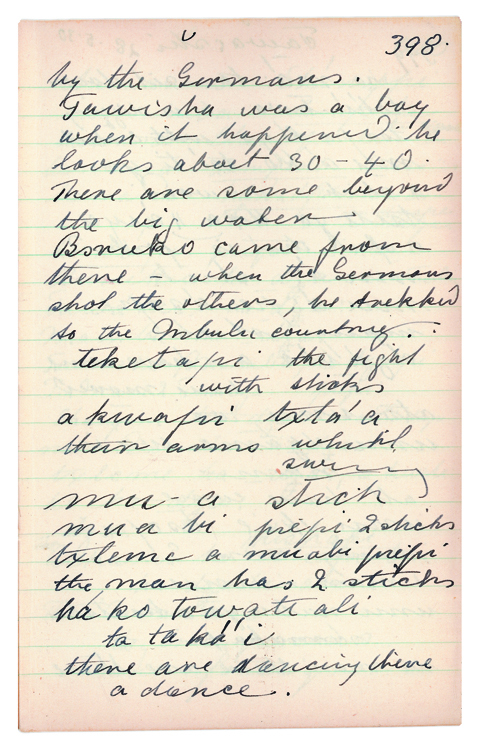 398.
by the Germans.
Tawisha was a boy
when it happened. he
looks about 30 - 40.
There are some beyond
the big water.
Bonuko came from
there - when the Germans
shot the others, he trekked
to the Mbulu country.
teketapi the fight
with sticks
akwapi txta'a
their arms whitel
swing
mu-a stick
mua bi pepi 2 sticks
txleme a muabi pepi
the man has 2 sticks
ha ko towati ali
ta taka'i
there are dancing there
a dance.